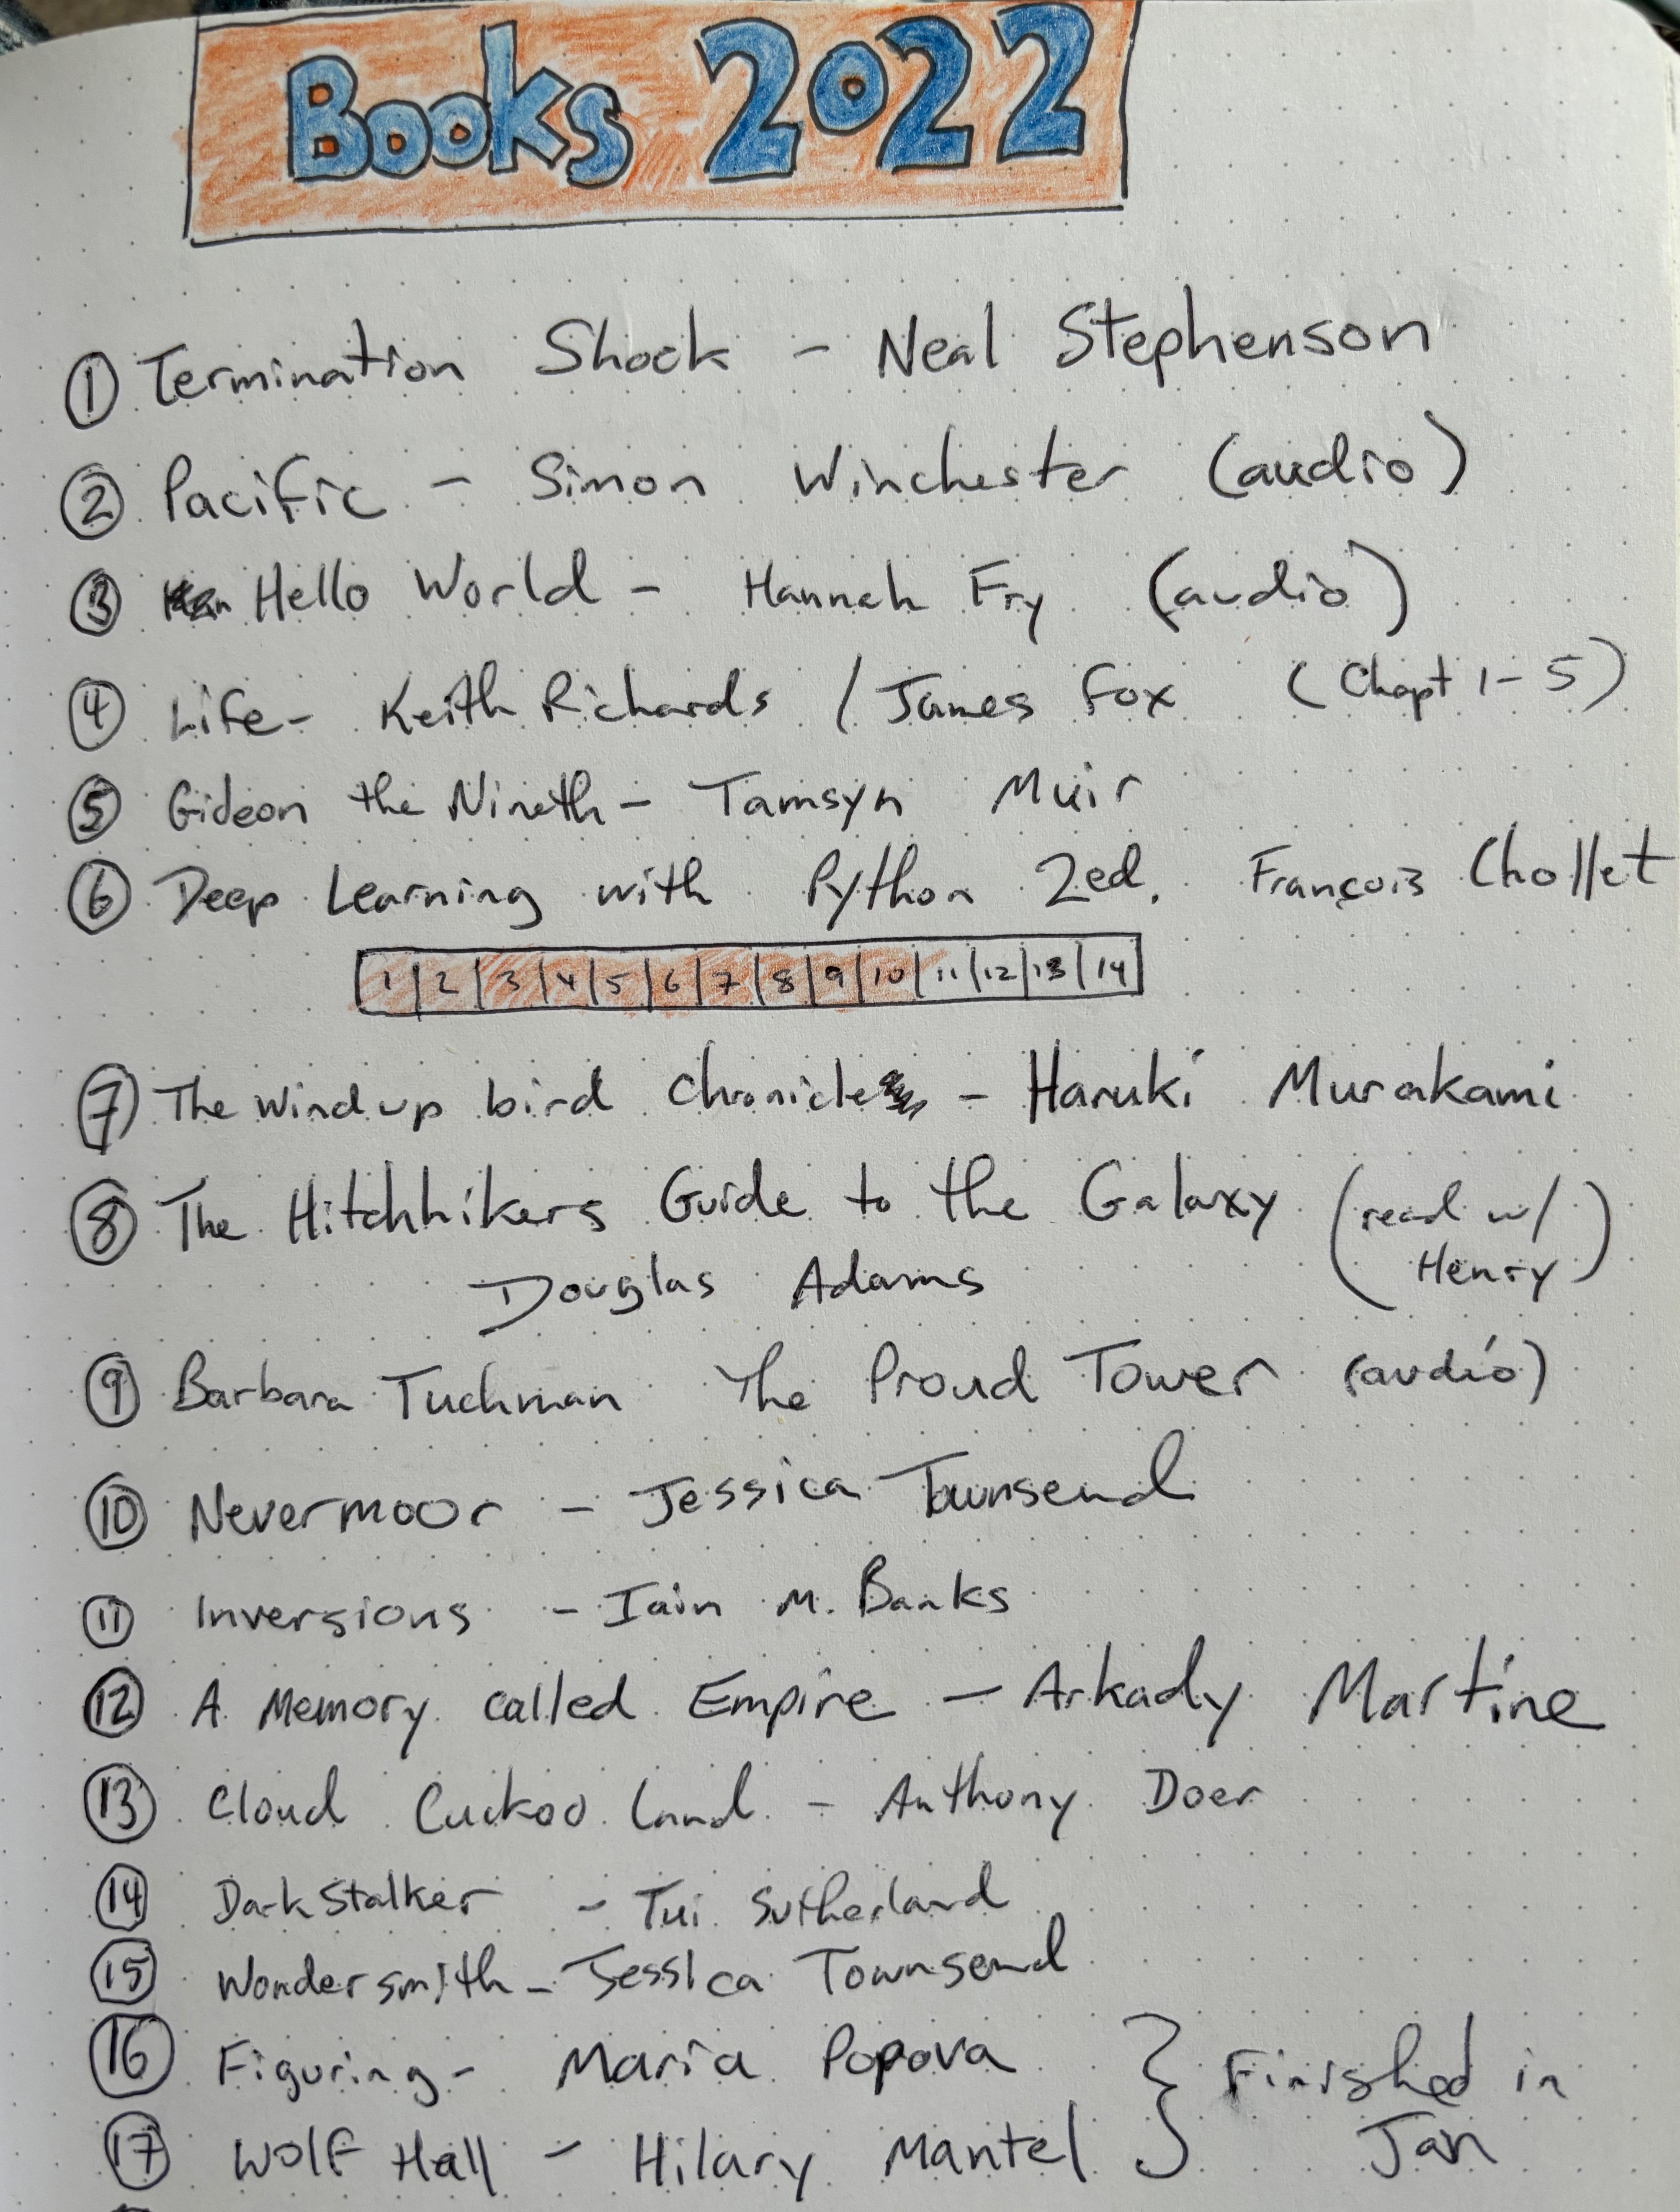 Books 2022
① Termination Shock - Neal Stephenson
② Pacific - Simon Winchester (audio)
③ Hello World - Hannah Fry (audio)
④ Life - Keith Richards / James Fox (Chapt 1-5)
⑤ Gideon the Nineth - Tamsyn Muir
⑥ Deep Learning with Python 2ed. François Chollet
1 2 3 4 5 6 7 8 9 10 11 12 13 14
⑦ The Wind up bird Chronicle - Haruki Murakami
⑧ The Hitchhikers Guide to the Galaxy (read w/
Douglas Adams Henry)
⑨ Barbara Tuchman The Proud Tower (audio)
⑩ Nevermoor - Jessica Townsend
⑪ Inversions - Iain M. Banks
⑫ A Memory called Empire - Arkady Martine
⑬ Cloud Cuckoo Land - Anthony Doer
⑭ DarkStalker - Tui Sutherland
⑮ Wondersmith - Jessica Townsend
⑯ Figuring - Maria Popova } Finished in
⑰ Wolf Hall - Hilary Mantel Jan